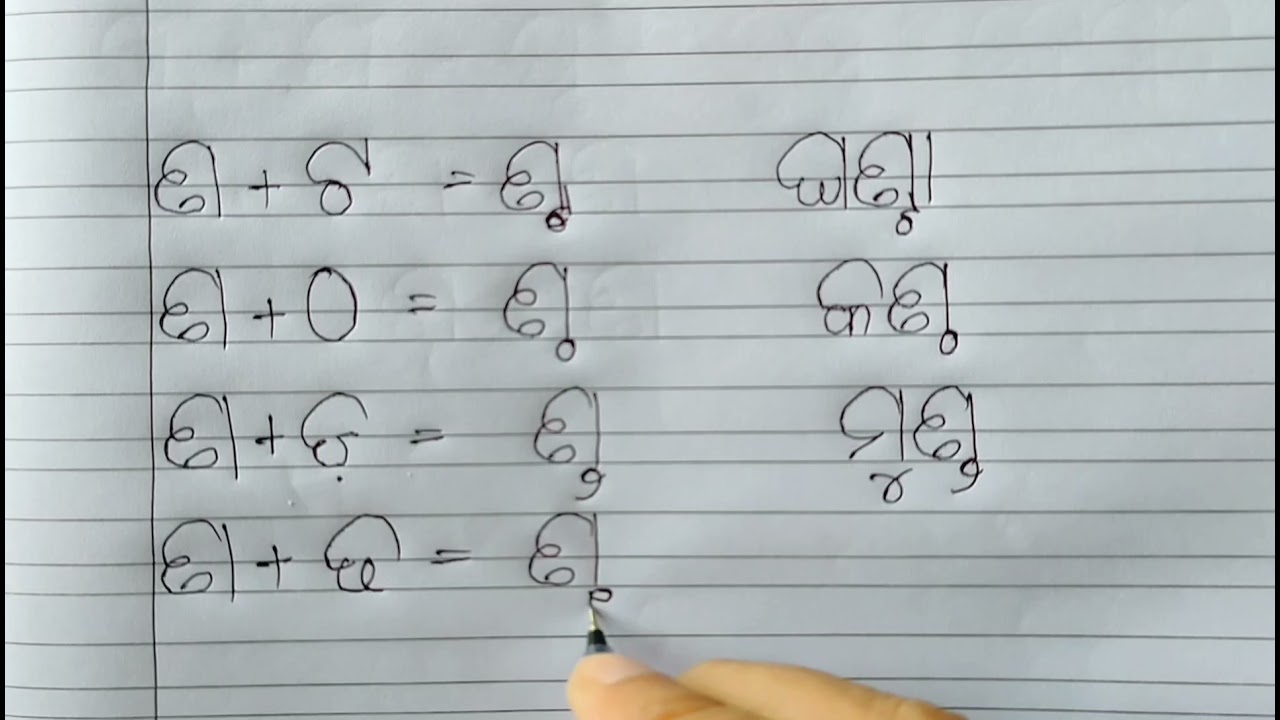 ଣ + ଟ = ଣ୍ଟ ଘଣ୍ଟା
ଣ + ଠ = ଣ୍ଠ କଣ୍ଠ
ଣ + ଡ଼ = ଣ୍ଡ ଗୁଣ୍ଡ
ଣ + ଢ = ଣ୍ଢ